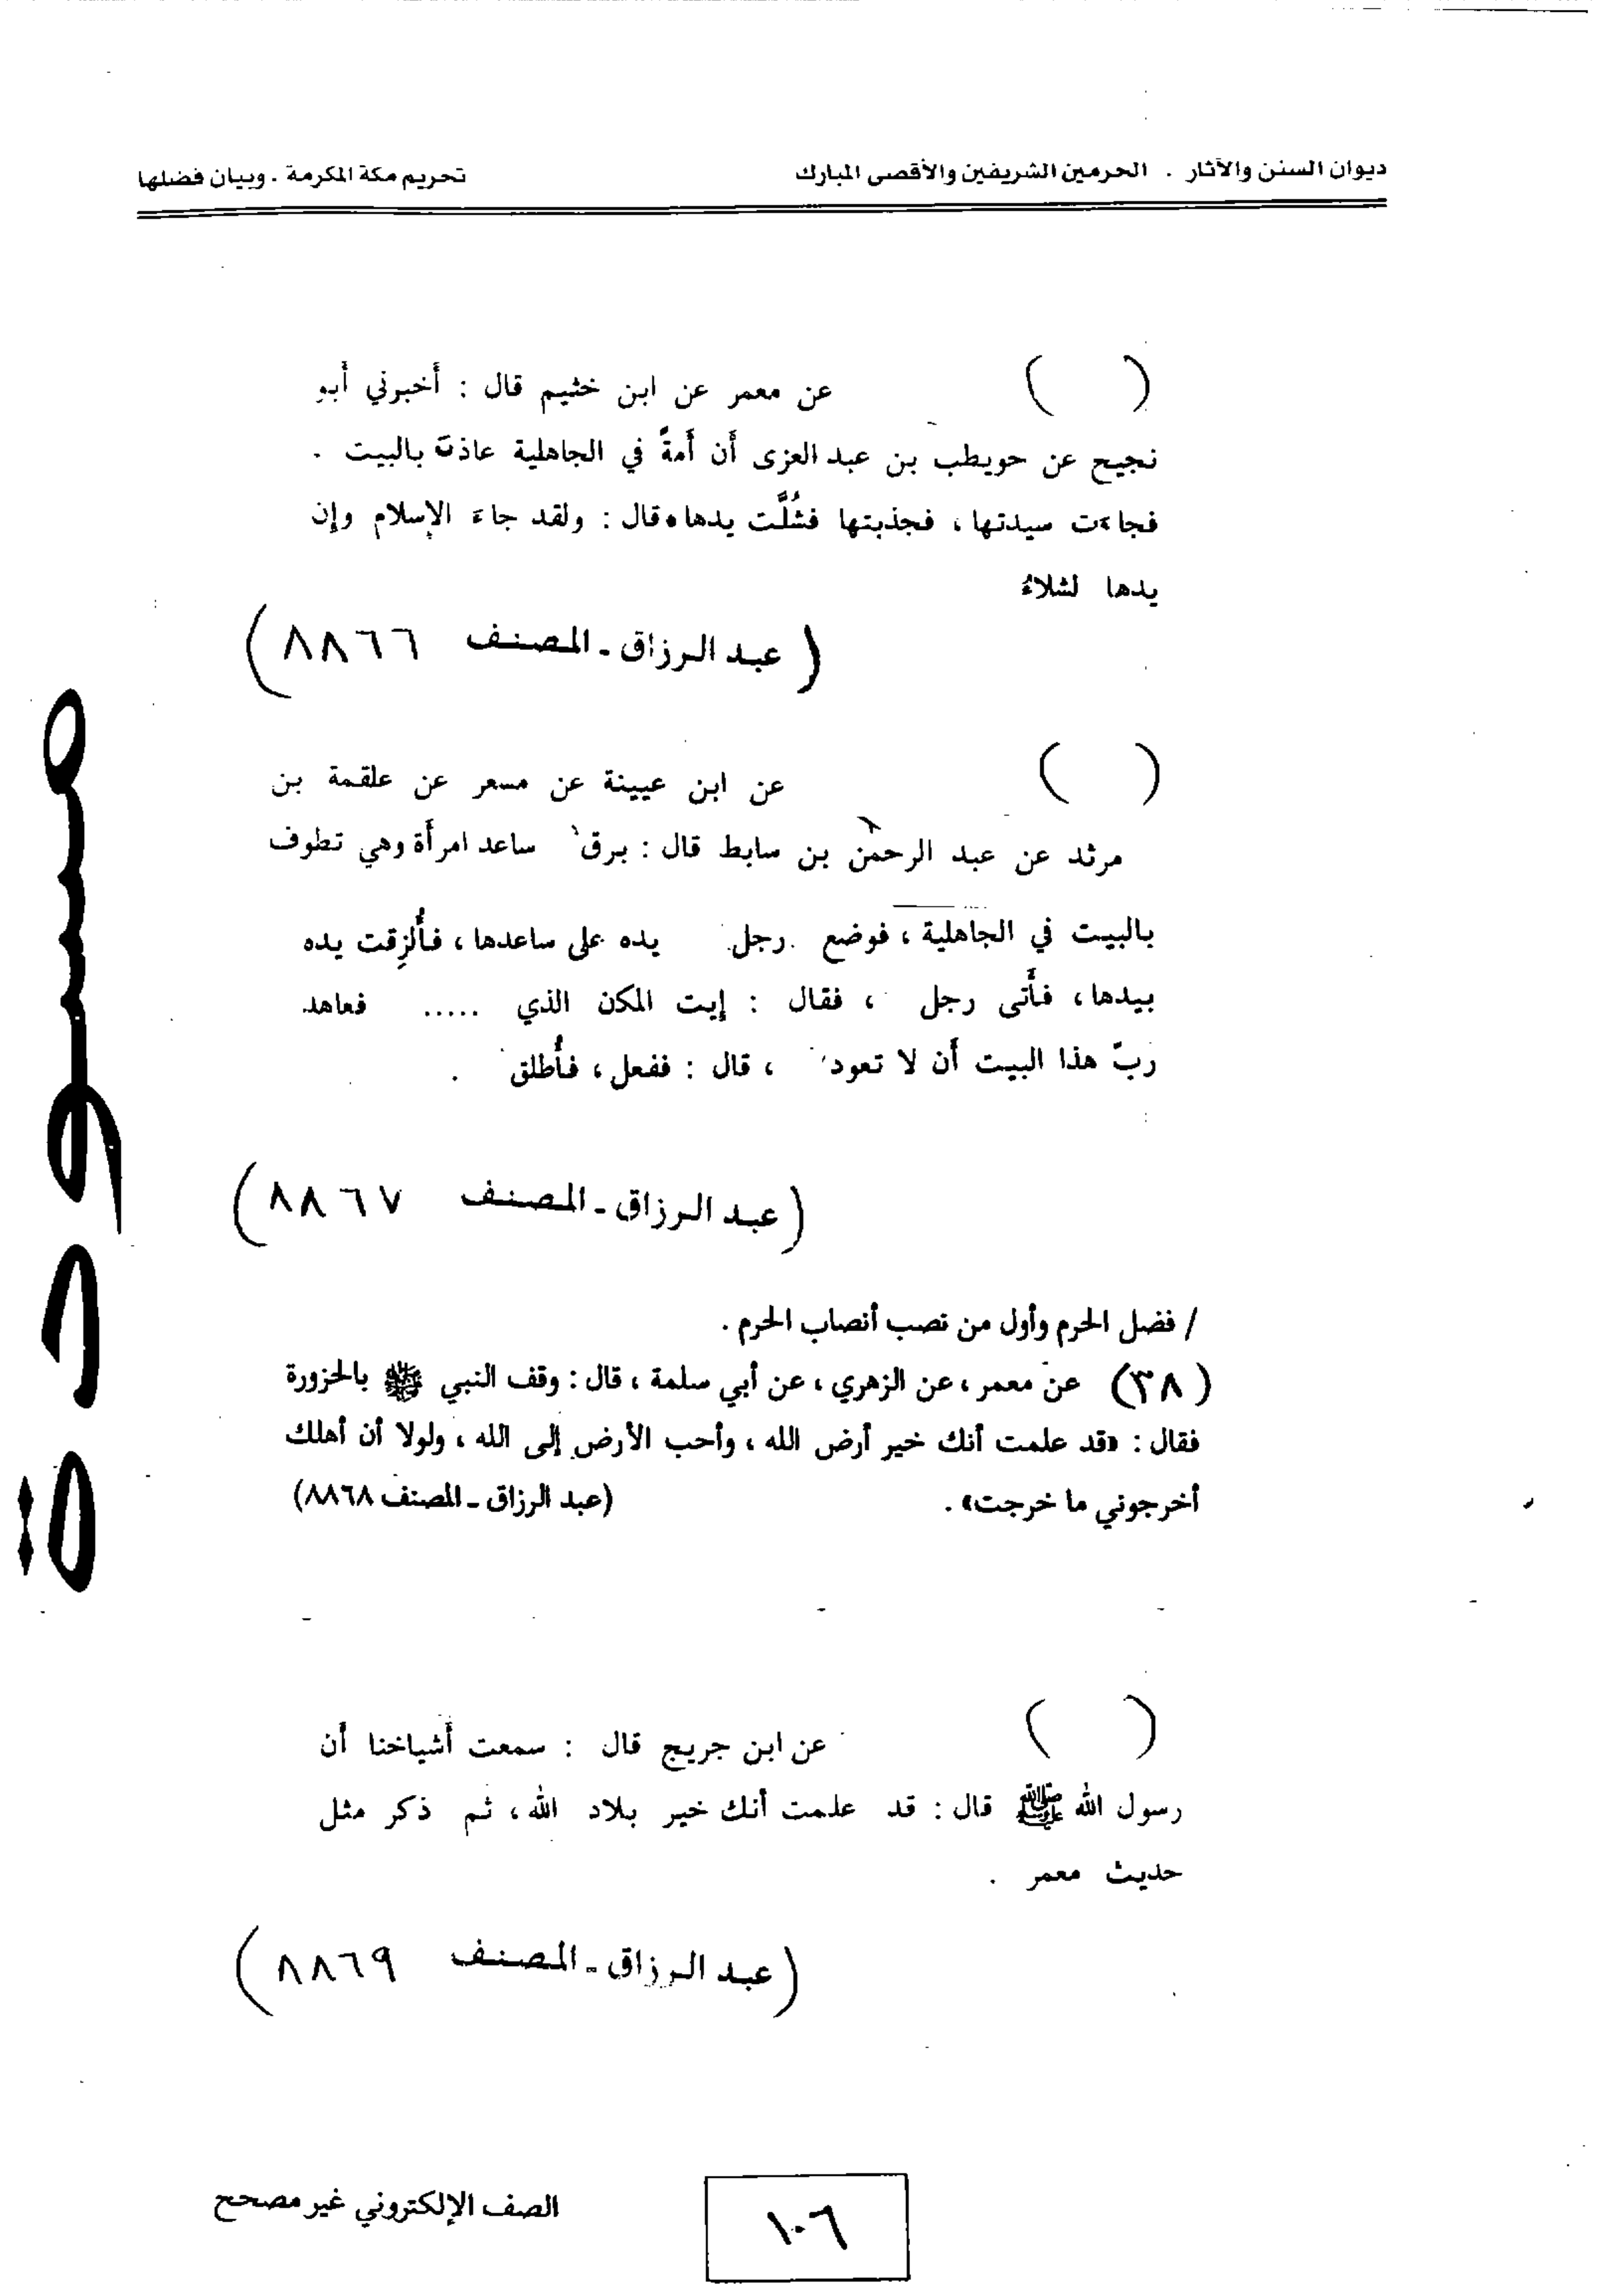 ديوان السنن والآثار . الحرمين الشريفين والأقصى المبارك تحريم مكة المكرمة . وبيان فضلها
( ) عن معمر عن ابن خثيم قال : أخبرني أبو
نجيح عن حويطب بن عبد العزى أن أمةً في الجاهلية عاذت بالبيت .
فجاءت سيدتها ، فجذبتها فشُلَّت يدها ، قال : ولقد جاءَ الإسلام وإن
يدها لشلاءُ
( عبد الرزاق ـ المصنف ٨٨٦٦ )
( ) عن ابن عيينة عن مسعر عن علقمة بن
مرثد عن عبد الرحمٰن بن سابط قال : برق ساعد امرأة وهي تطوف
بالبيت في الجاهلية ، فوضع رجل يده على ساعدها ، فأُلزِقت يده
بيدها ، فأَتى رجل ، فقال : إيت المكن الذي ..... فعاهد
ربّ هذا البيت أَن لا تعود ، قال : ففعل ، فأُطلق .
( عبد الرزاق ـ المصنف ٨٨٦٧ )
/ فضل الحرم وأول من نصب أنصاب الحرم .
(٣٨) عن معمر ، عن الزهري ، عن أبي سلمة ، قال : وقف النبي ﷺ بالحزورة
فقال : «قد علمت أنك خير أرض الله ، وأحب الأرض إلى الله ، ولولا أن أهلك
أخرجوني ما خرجت» . (عبد الرزاق ـ المصنف ٨٨٦٨)
( ) عن ابن جريج قال : سمعت أشياخنا أن
رسول الله ﷺ قال : قد علمت أنك خير بلاد الله ، ثم ذكر مثل
حديث معمر .
( عبد الرزاق ـ المصنف ٨٨٦٩ )
مسودة
الصف الإلكتروني غير مصحح
١٠٦